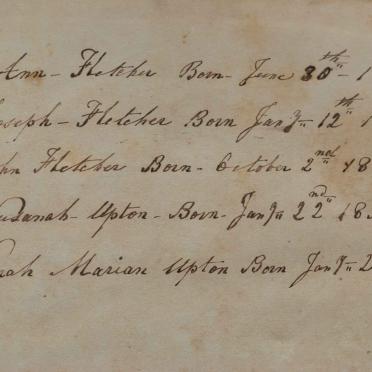 Ann - Fletcher Born - June 30th - 1
Joseph - Fletcher Born Jany 12th 1
Fletcher Born - October 2nd 18
Upton - Born - Jany 22nd 18
Marian Upton Born Jany 2